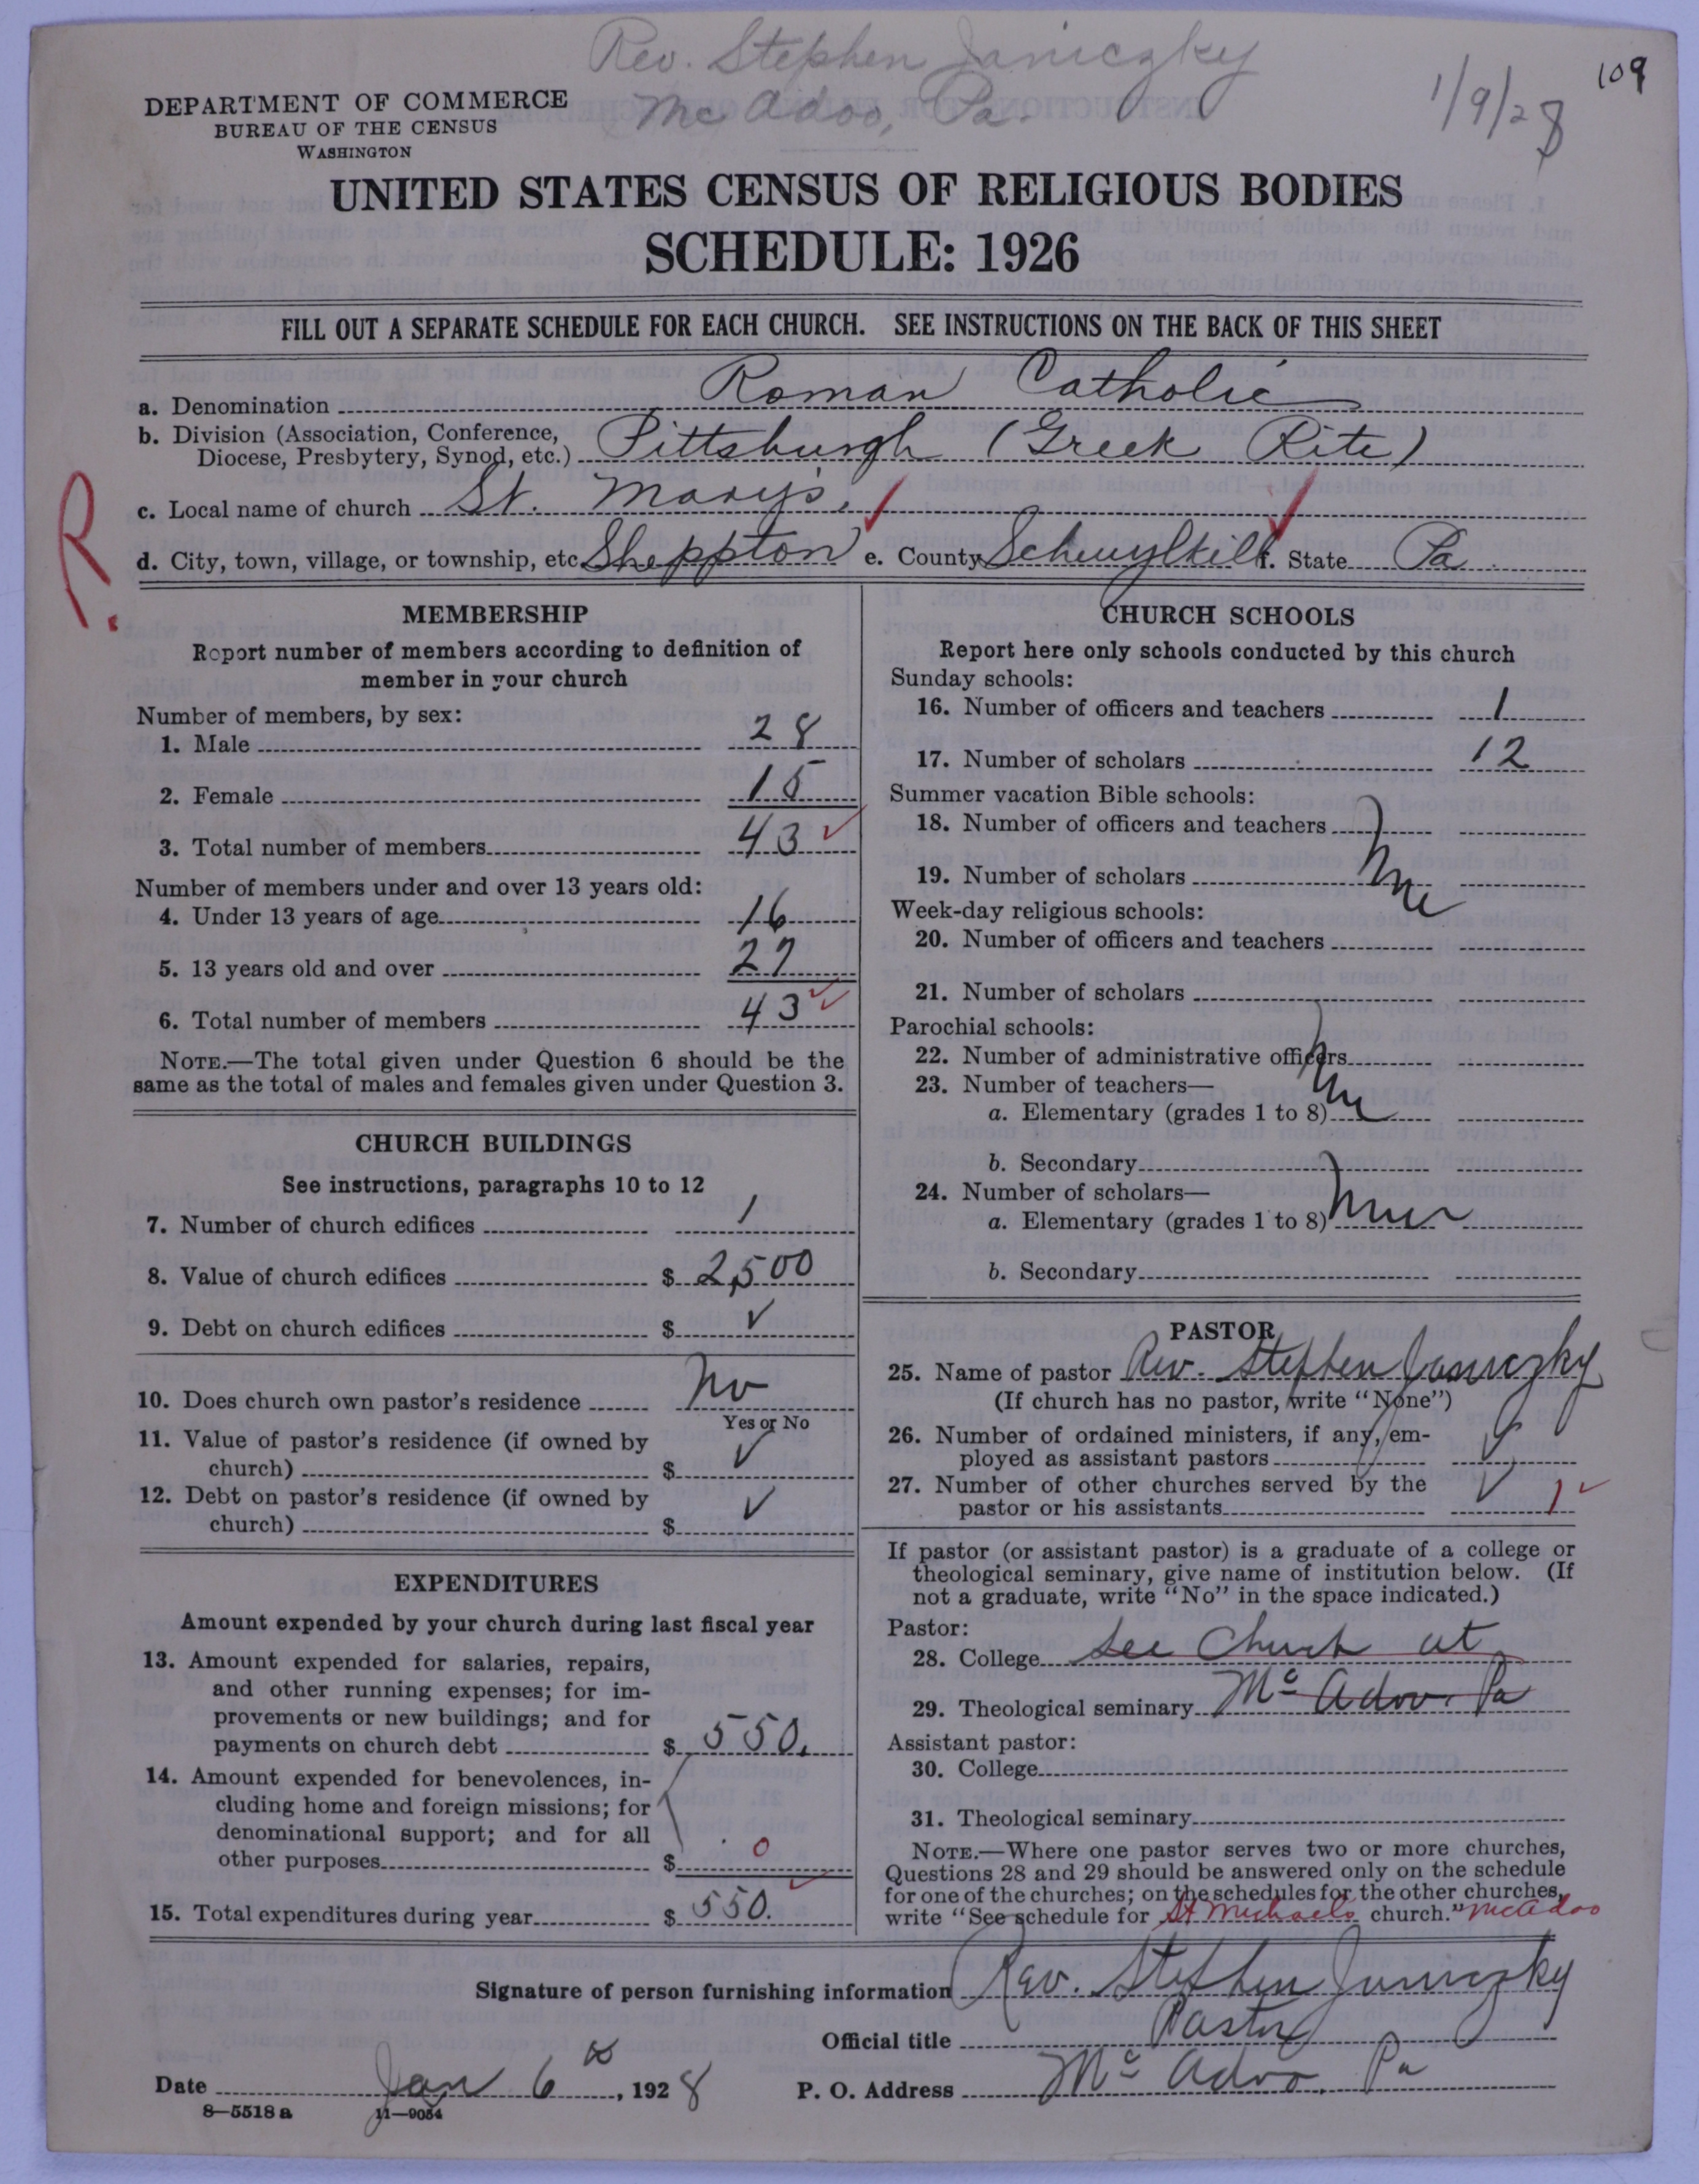 Rev. Stephen Janiczky
Mc Adoo, Pa.
1/9/28
109
DEPARTMENT OF COMMERCE
BUREAU OF THE CENSUS
WASHINGTON
UNITED STATES CENSUS OF RELIGIOUS BODIES
SCHEDULE: 1926
FILL OUT A SEPARATE SCHEDULE FOR EACH CHURCH. SEE INSTRUCTIONS ON THE BACK OF THIS SHEET
a. Denomination Roman Catholic
b. Division (Association, Conference, Diocese, Presbytery, Synod, etc.) Pittsburgh (Greek Rite)
R.
c. Local name of church St. Mary's.
d. City, town, village, or township, etc. Sheppton e. County Schuylkill f. State Pa
MEMBERSHIP
Report number of members according to definition of
member in your church
Number of members, by sex:
1. Male 28
2. Female 15
3. Total number of members 43
Number of members under and over 13 years old:
4. Under 13 years of age 16
5. 13 years old and over 27
6. Total number of members 43
NOTE.—The total given under Question 6 should be the
same as the total of males and females given under Question 3.
CHURCH BUILDINGS
See instructions, paragraphs 10 to 12
7. Number of church edifices 1
8. Value of church edifices $ 2,500
9. Debt on church edifices $ ✓
10. Does church own pastor's residence No
Yes or No
11. Value of pastor's residence (if owned by
church) $ ✓
12. Debt on pastor's residence (if owned by
church) $ ✓
EXPENDITURES
Amount expended by your church during last fiscal year
13. Amount expended for salaries, repairs,
and other running expenses; for im-
provements or new buildings; and for
payments on church debt $ 550.
14. Amount expended for benevolences, in-
cluding home and foreign missions; for
denominational support; and for all
other purposes $ 0
15. Total expenditures during year $ 550.
CHURCH SCHOOLS
Report here only schools conducted by this church
Sunday schools:
16. Number of officers and teachers 1
17. Number of scholars 12
Summer vacation Bible schools:
18. Number of officers and teachers
19. Number of scholars
Week-day religious schools:
20. Number of officers and teachers
21. Number of scholars
Parochial schools:
22. Number of administrative officers
23. Number of teachers—
a. Elementary (grades 1 to 8)
b. Secondary
24. Number of scholars—
a. Elementary (grades 1 to 8)
b. Secondary
PASTOR
25. Name of pastor Rev. Stephen Janiczky
(If church has no pastor, write "None")
26. Number of ordained ministers, if any, em-
ployed as assistant pastors ✓
27. Number of other churches served by the
pastor or his assistants ✓ 1 ✓
If pastor (or assistant pastor) is a graduate of a college or
theological seminary, give name of institution below. (If
not a graduate, write "No" in the space indicated.)
Pastor:
28. College See Church at
29. Theological seminary Mc Adoo. Pa
Assistant pastor:
30. College
31. Theological seminary
NOTE.—Where one pastor serves two or more churches,
Questions 28 and 29 should be answered only on the schedule
for one of the churches; on the schedules for the other churches,
write "See schedule for St Michaels church." McAdoo
Signature of person furnishing information Rev. Stephen Janiczky
Official title Pastor
Date Jan 6th, 1928 P. O. Address Mc Adoo, Pa
8—5518 a 11—9054